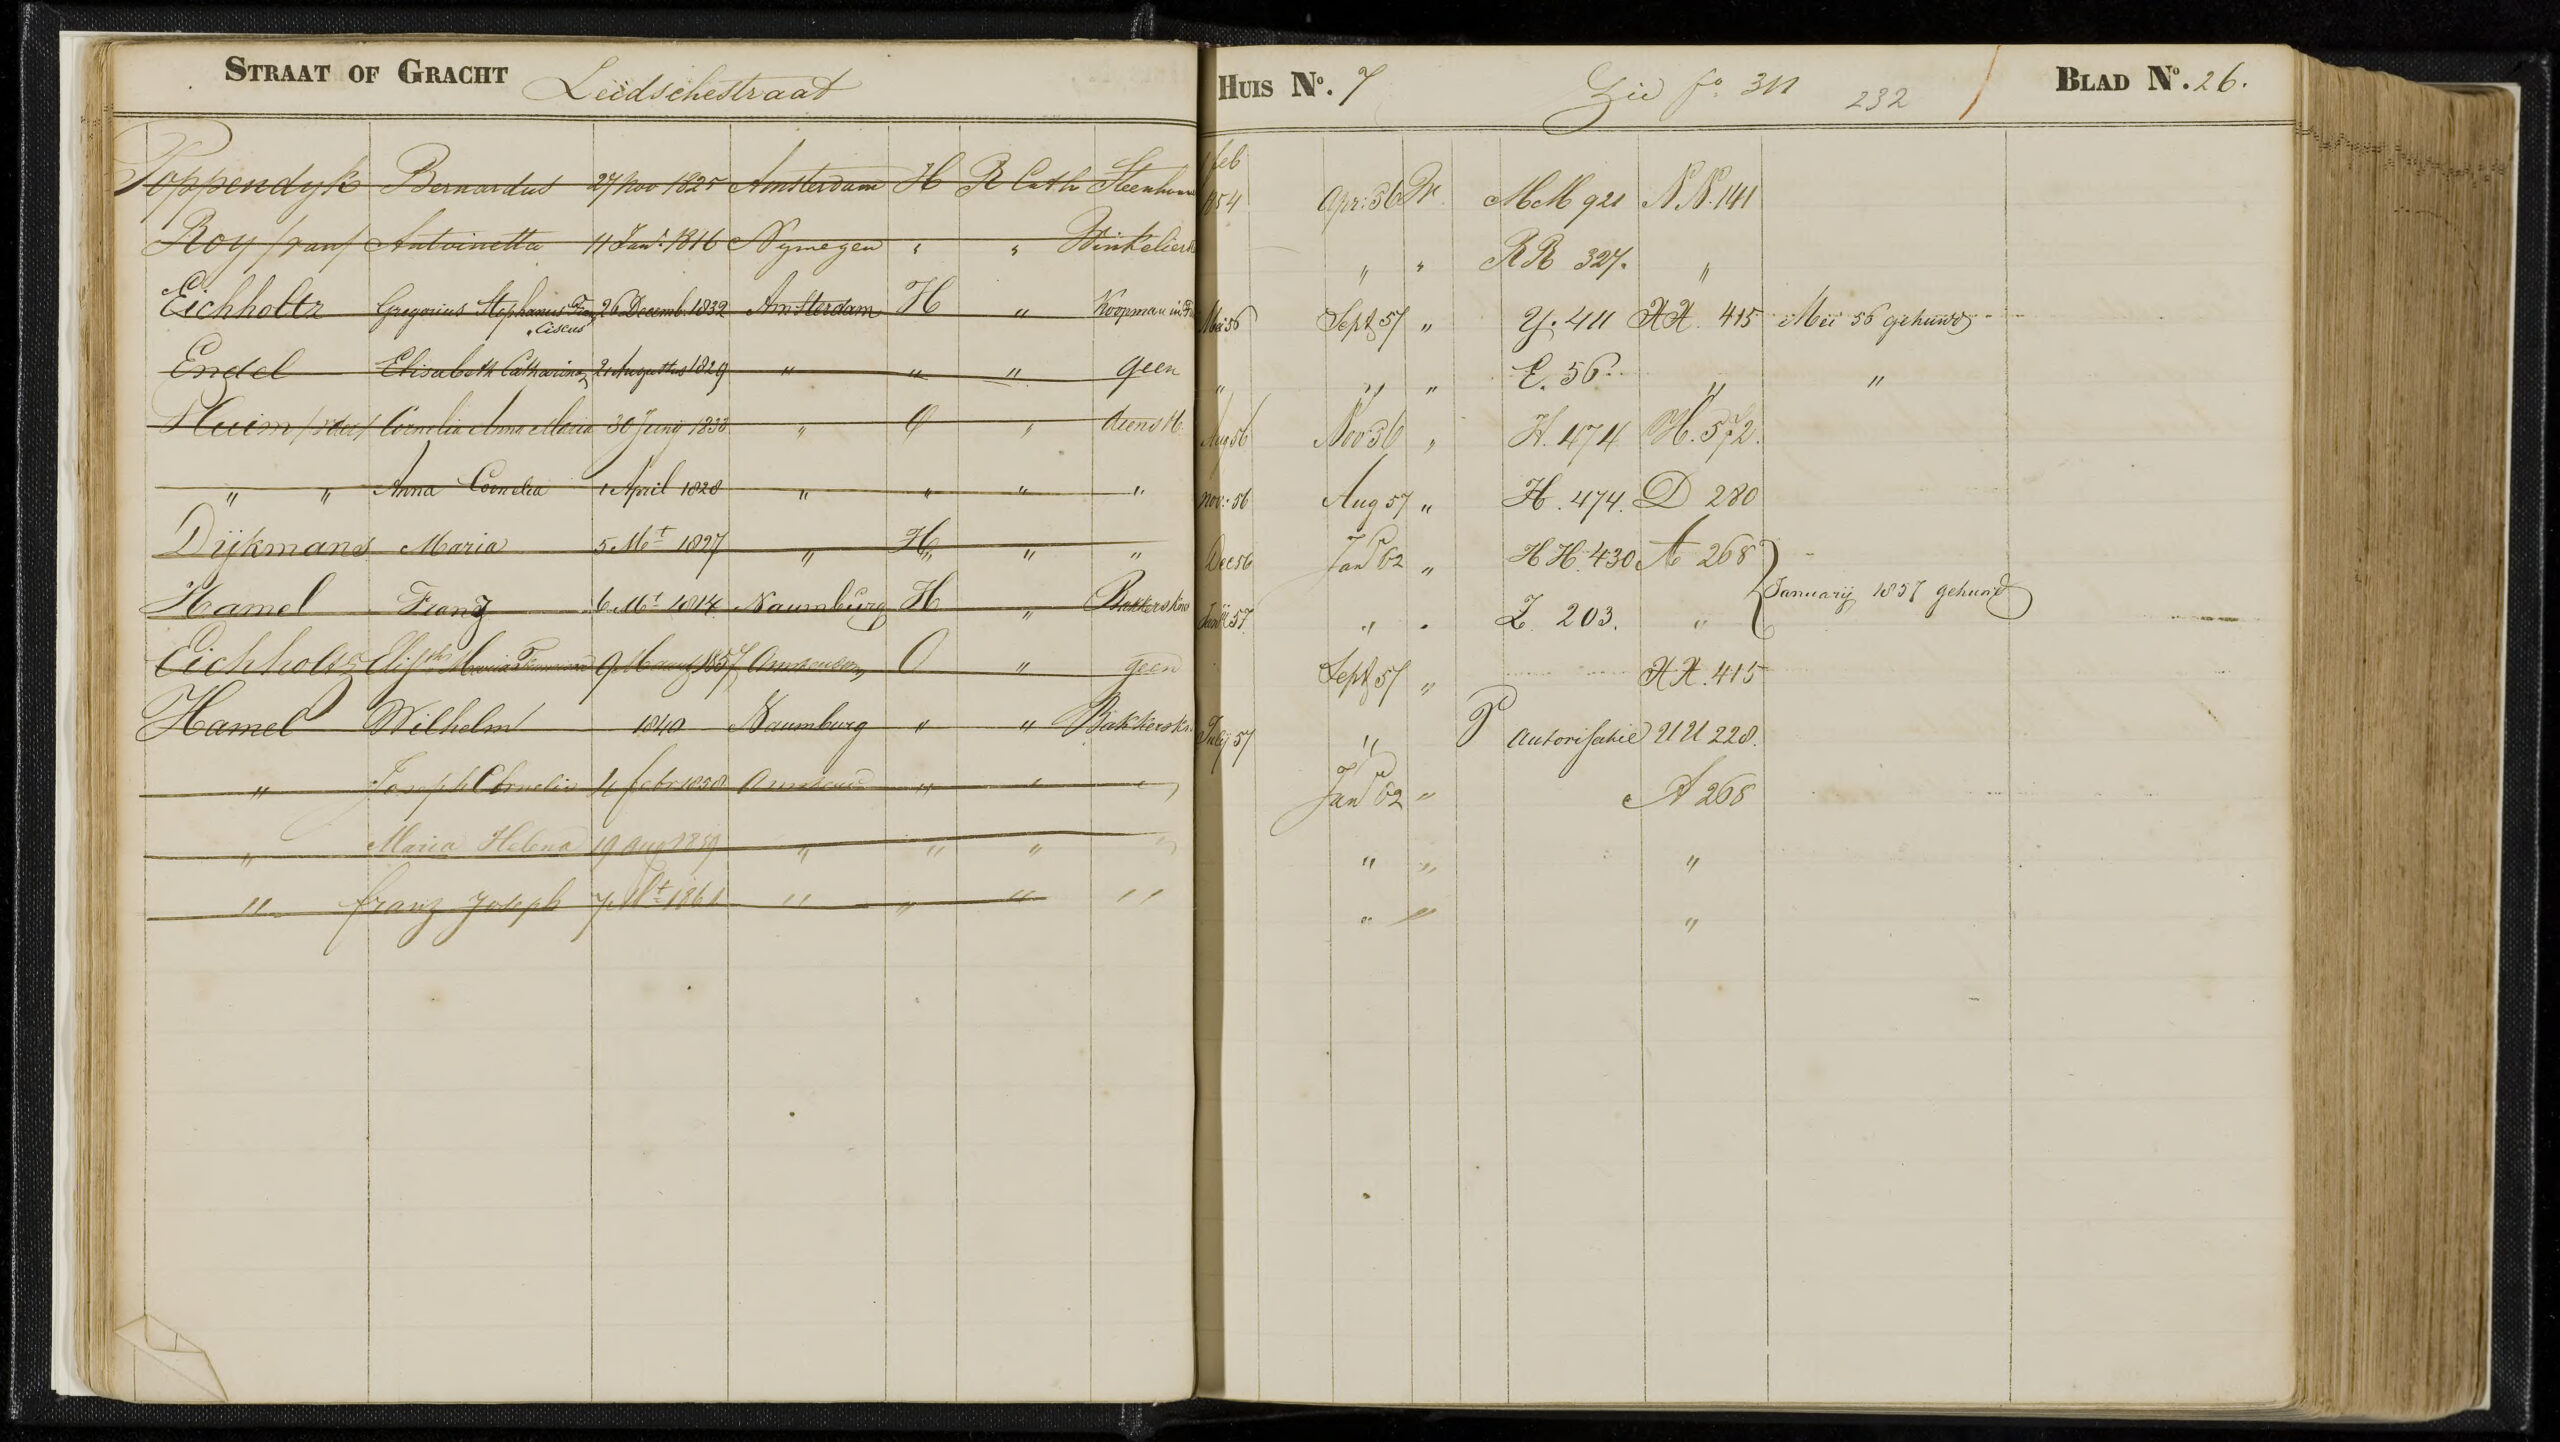 STRAAT OF GRACHT Leidschestraat HUIS No. 7 Zie fo 311 232 BLAD No. 26.
Poppendyk Bernardus 27 nov 1825 Amsterdam H R Cath 1 feb 1854 Apr: 56 Pr MM 921 NN. 141
Roy /van/ Antoinetta 11 Jan: 1816 Nymegen " " Winkelier " " RR 327. "
Eichholtz Gregorius Stephanus Franciscus 26 Decemb. 1832 Amsterdam H " Koopman in Mei 56 Sept 57 " Y. 411 XX. 415 Mei 56 gehuwd
Endel Elisabeth Catharina 2 Augustus 1829 " " " geen " " " E. 56. " "
Cornelia Anna Maria 30 Juny 1833 " O " dienstb. Aug 56 Nov 56 " H. 474 H. 572.
" " Anna Cornelia 1 April 1828 " " " " nov: 56 Aug 57 " H. 474. D 280
Dijkmans Maria 5 Mt 1827 " H " " Dec 56 Jan 62 " HH. 430 A 268
Hamel Franz 6 Mt 1814 Naumburg H " Bakkerskn Jan 57. " " Z. 203. " January 1857 gehuwd
Eichholtz Elisth Maria 9 1857 Amsterdam O " geen Sept 57 " XX. 415
Hamel Wilhelm 1840 Naumburg " " Bakkerskn. July 57 " P Autorisatie UU 228.
" Joseph Cornelis 4 febr 1858 Amsterd " " " Jan 62 " A 268
" Maria Helena 19 aug 1859 " " " " " " "
" Franz Joseph 7 Mt 1861 " " " " " " "